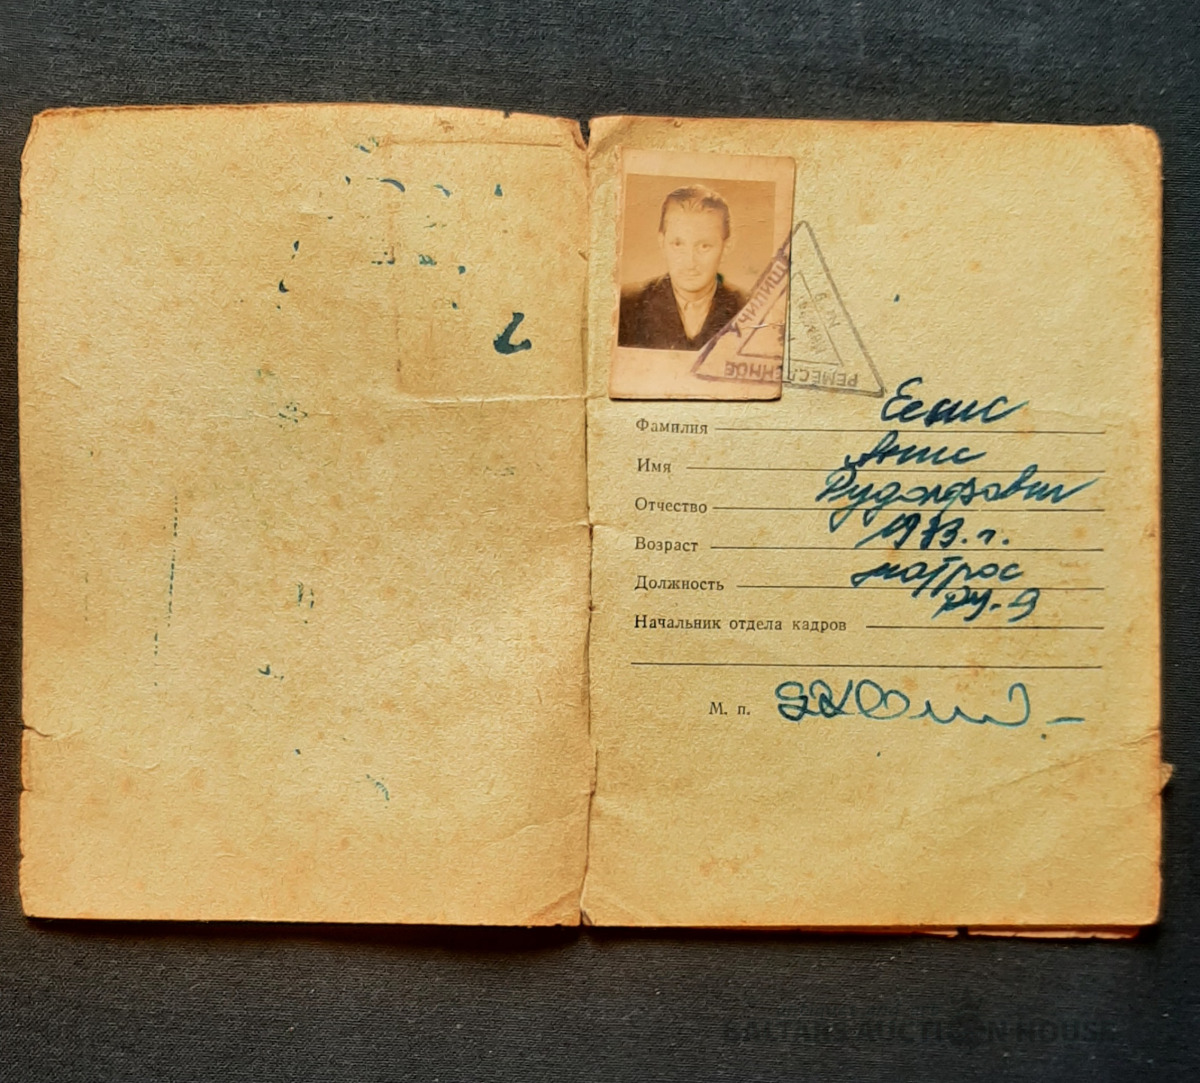 РЕМЕСЛЕННОЕ
УЧИЛИЩ
№ 9
Фамилия
Имя Анис
Отчество Рудольфович
Возраст
Должность матрос
РУ-9
Начальник отдела кадров
М. п.
BALTARS AUCTION HOUSE